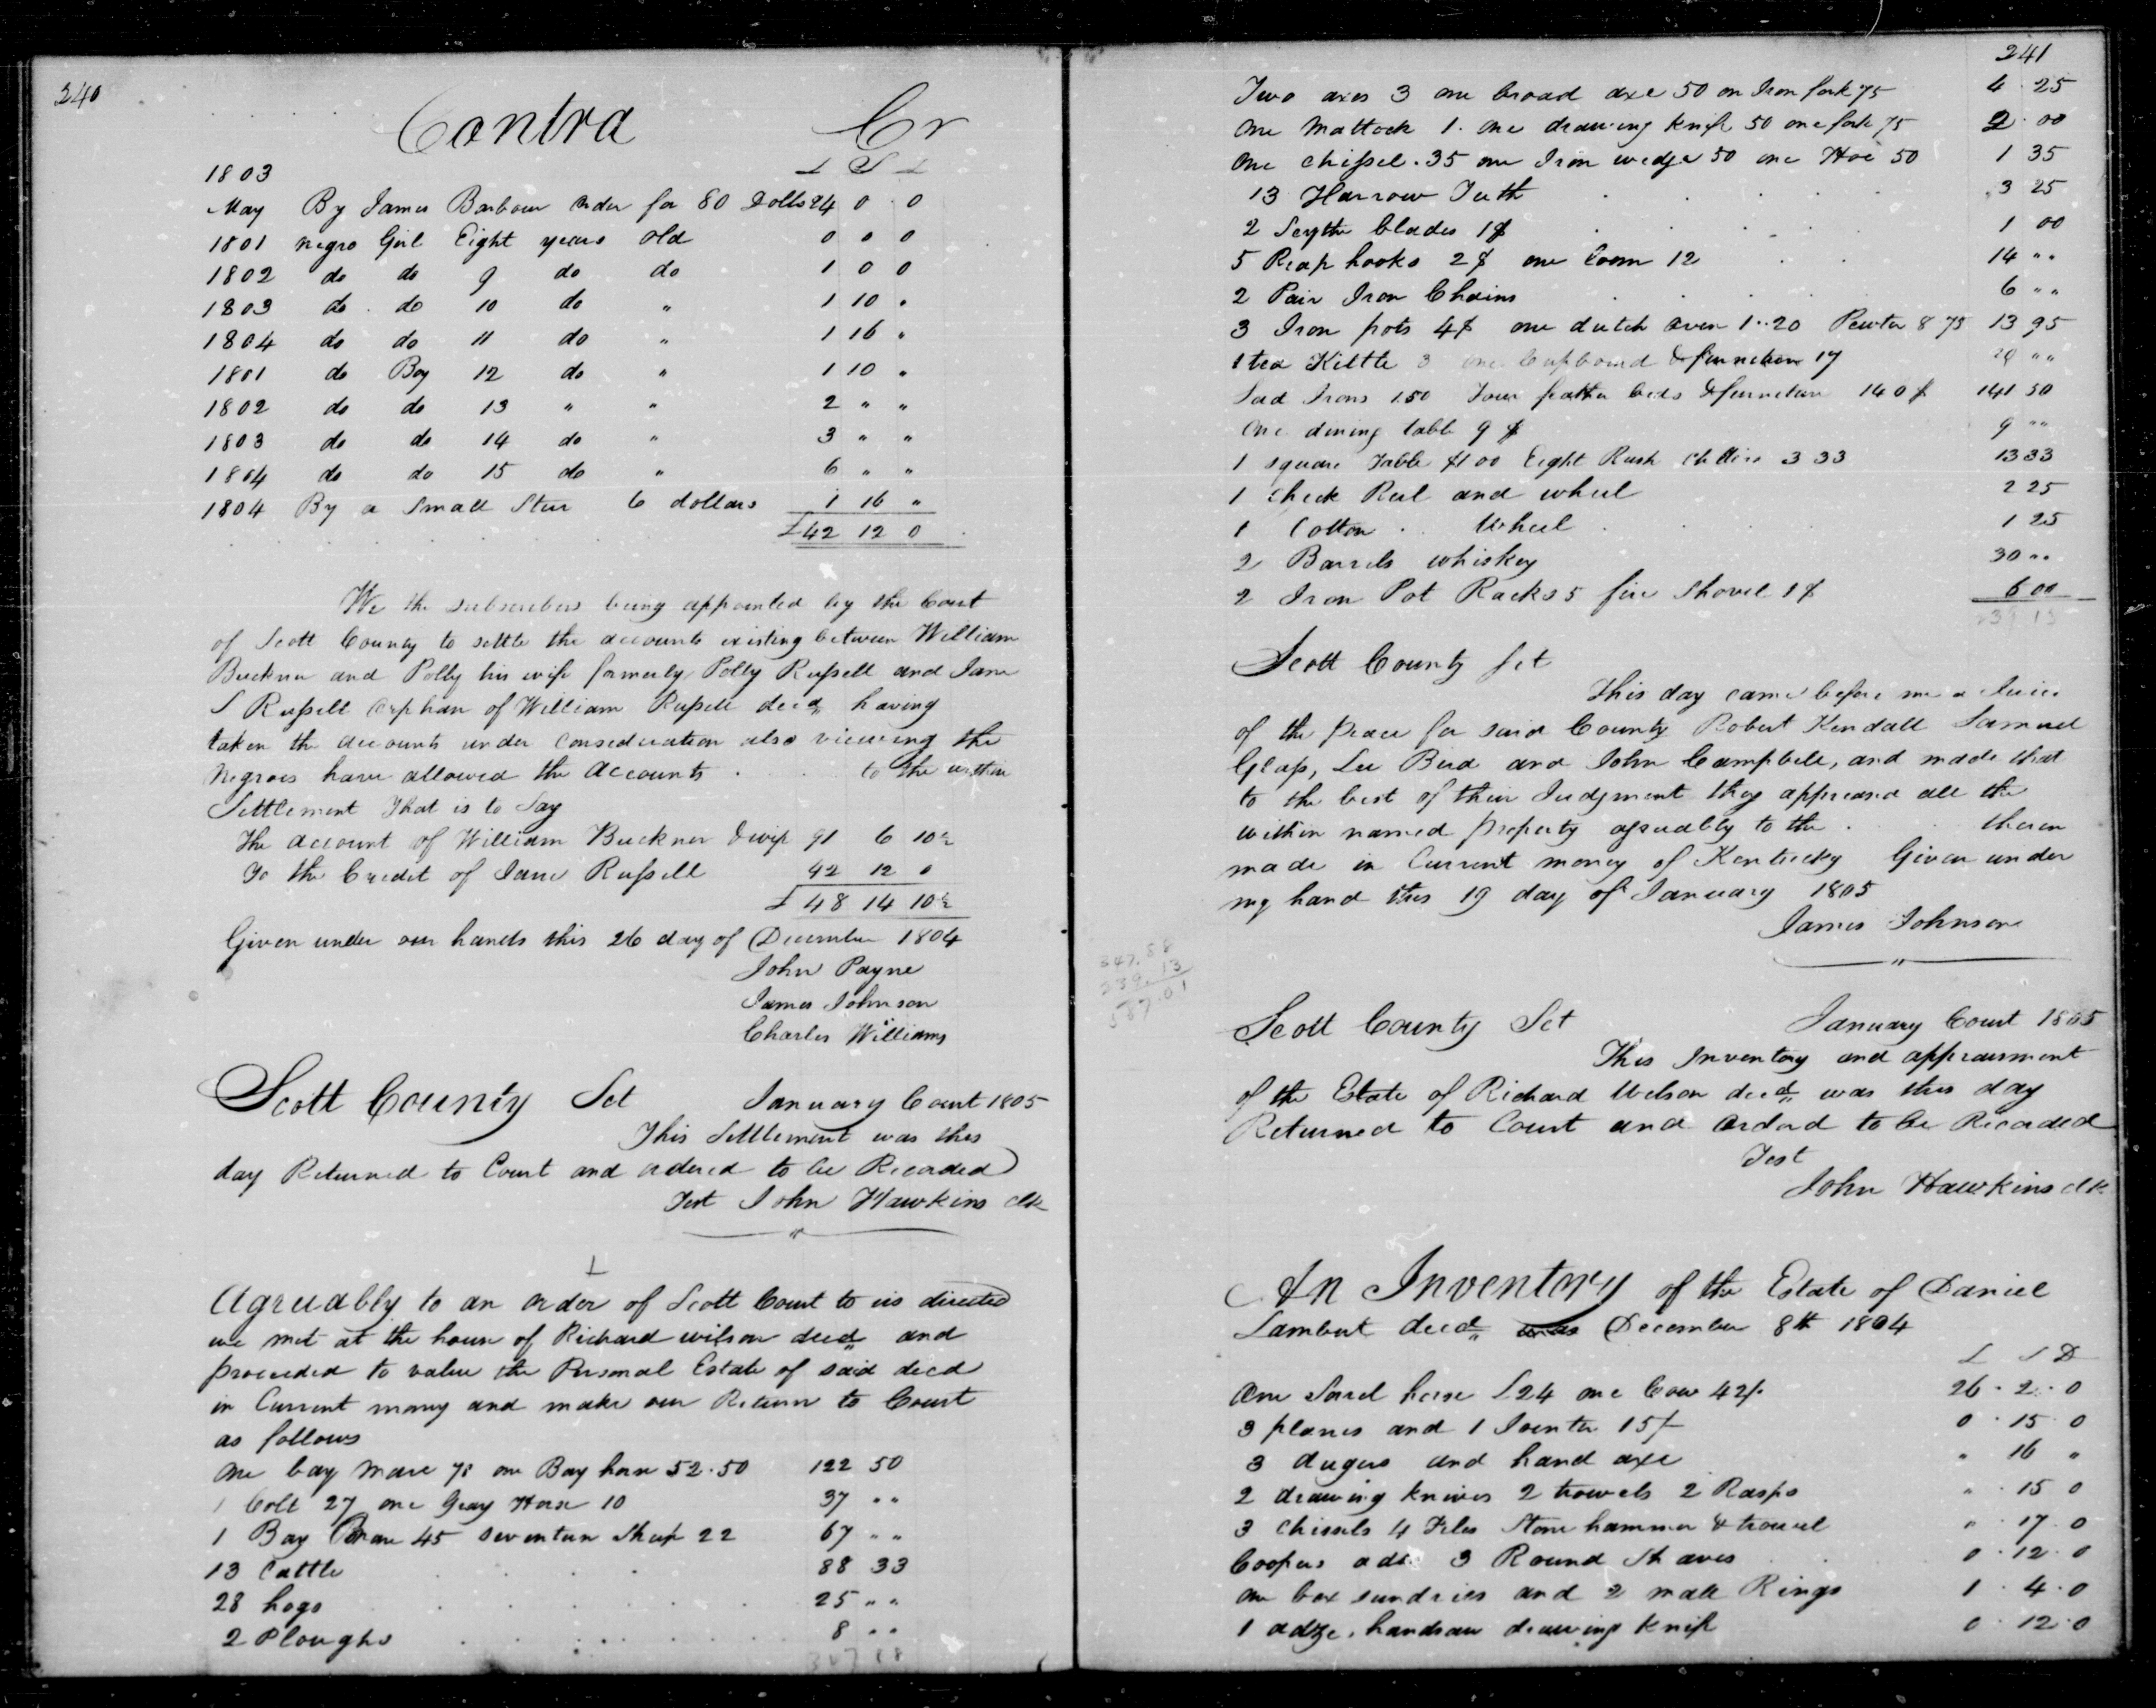 240
Contra Cr
1803 £ S £
May By James Barbour order for 80 Dolls 24 0 0
1801 negro Girl Eight years old 0 0 0
1802 do do 9 do do 1 0 0
1803 do do 10 do " 1 10 "
1804 do do 11 do " 1 16 "
1801 do Boy 12 do " 1 10 "
1802 do do 13 " " 2 " "
1803 do do 14 do " 3 " "
1804 do do 15 do " 6 " "
1804 By a Small Steer 6 dollars 1 16 "
£42 12 0
We the subscribers being appointed by the Court
of Scott County to settle the accounts existing between William
Buckner and Polly his wife formerly Polly Russell and Jane
S Russell Orphan of William Russell decd having
taken the accounts under consideration also viewing the
Negroes have allowed the accounts to the within
Settlement That is to Say
The account of William Buckner & wife 91 6 10½
To the Credit of Jane Russell 42 12 0
£ 48 14 10½
Given under our hands this 26 day of December 1804
John Payne
James Johnson
Charles Williams
Scott County Sct January Court 1805
This Settlement was this
day Returned to Court and ordered to be Recorded
Test John Hawkins clk
Agreeably to an order of Scott Court to us directed
we met at the house of Richard wilson decd and
proceeded to value the Personal Estate of said decd
in Current money and make our Return to Court
as follows
One bay mare 70 one Bay horse 52.50 122 50
1 Colt 27 one Gray Horse 10 37 " "
1 Bay Mare 45 seventeen Sheep 22 67 " "
13 Cattle 88 33
28 hogs 25 " "
2 Ploughs 8 " "
347 88
241
Two axes 3 one broad axe 50 on Iron fork 75 4.25
One Mattock 1. one drawing knife 50 one fork 75 2.00
One chissel .35 one Iron wedge 50 one Hoe 50 1 35
13 Harrow Teeth 3 25
2 Scythe blades 1$ 1 00
5 Reap hooks 2$ one Loom 12 14 " "
2 Pair Iron Chains 6 " "
3 Iron pots 4$ one dutch oven 1..20 Pewter 8 75 13 95
1 tea Kittle 3 one Cupboard & furneture 17 20 " "
Sad Irons 1.50 Four feather beds & furneture 140$ 141 50
One dining table 9$ 9 " "
1 square Table $1 00 Eight Rush chairs 3 33 13 33
1 check Reel and wheel 2 25
1 Cotton Wheel 1 25
2 Barrels whiskey 30 " "
2 Iron Pot Racks 5 fire Shovel 1$ 6 00
239 13
Scott County Sct
This day came before me a Justice
of the peace for said County Robert Kendall Samuel
Glass, Lee Bird and John Campbell, and made that
to the best of their Judgment they appraised all the
within named property agreeably to the therein
made in Current money of Kentucky Given under
my hand this 19 day of January 1805
James Johnson
347.88
239.13
587.01
Scott County Sct January Court 1805
This Inventory and appraisment
of the Estate of Richard Wilson decd was this day
Returned to Court and ordered to be Recorded
Test
John Hawkins clk
An Inventory of the Estate of Daniel
Lambert decd was December 8th 1804
£ S D
One Sorrel horse £24 one Cow 42/. 26.2.0
3 planes and 1 Jointer 15/ 0.15.0
3 augers and hand axe " 16 "
2 drawing knives 2 trowels 2 Rasps " .15 0
3 Chissels 4 Files Stone hammer & trowel " .17.0
Coopers adz 3 Round Shaves 0.12.0
One box sundries and 2 mall Rings 1.4.0
1 adze, handsaw drawing knife 0.12.0